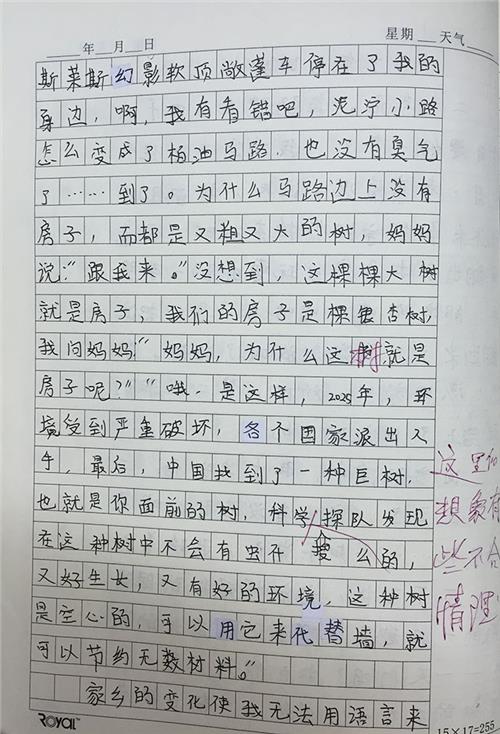 年 月 日 星期 天气
斯莱斯幻影软顶敞蓬车停在了我的
身边，啊，我有看错吧，泥泞小路
怎么变成了柏油马路．也没有臭气
了……到了。为什么马路边上没有
房子，而都是又粗又大的树，妈妈
说:“跟我来。”没想到，这棵棵大树
就是房子，我们的房子是棵银杏树，
我问妈妈:“妈妈，为什么这树就是
房子呢?”“哦，是这样，2025年，环
境受到严重破坏，各个国家派出人
手，最后，中国找到了一种巨树，
也就是你面前的树，科学探队发现
在这种树中不会有虫什么的，
又好生长，又有好的环境，这种树
是空心的，可以用它来代替墙，就
可以节约无数材料。”
家乡的变化使我无法用语言来
这里
想象有
些不合
情理
ROYAL
15×17=255